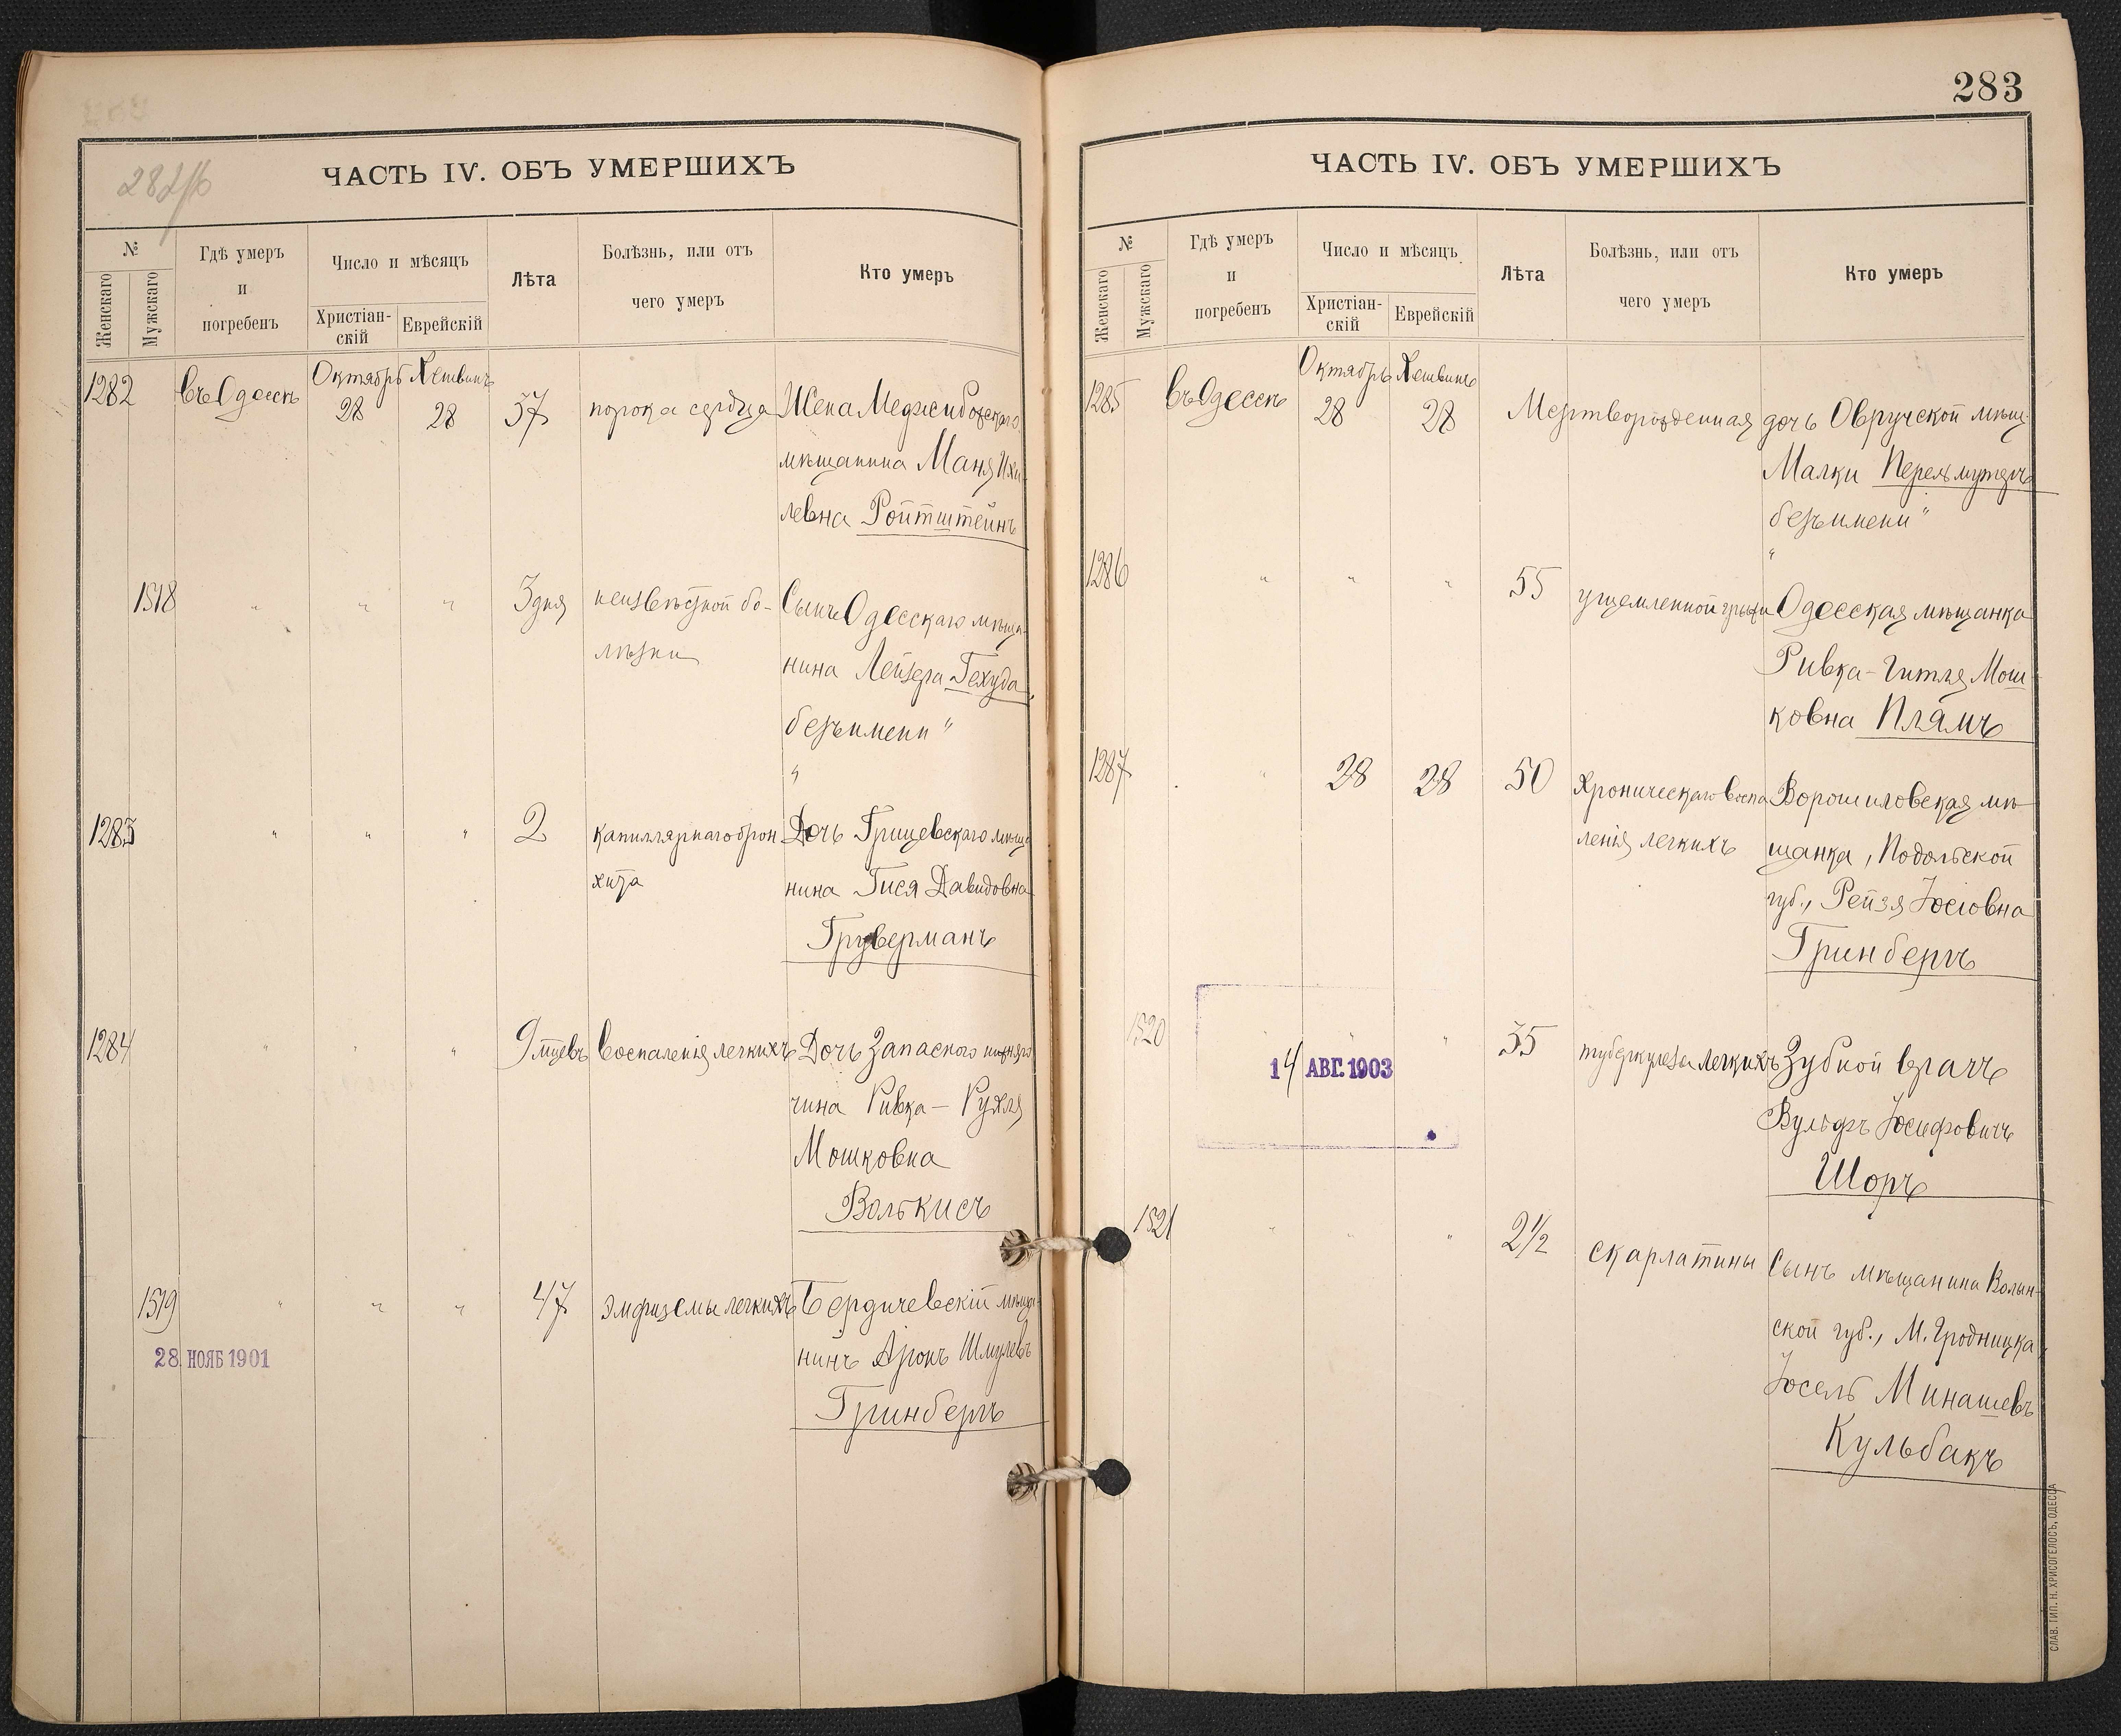 283
282/б
ЧАСТЬ IV. ОБЪ УМЕРШИХЪ
№
Женскаго
Мужскаго
Гдѣ умеръ
и
погребенъ
Число и мѣсяцъ
Христіан-
скій
Еврейскій
Лѣта
Болѣзнь, или отъ
чего умеръ
Кто умеръ
Октябрь Хешвинъ
1282 въ Одессѣ 28 28 37 порока сердца Жена Меджибожскаго
мѣщанина Маня Ихи-
левна Ройтштейнъ
1518 " " " 3 дня неизвѣстной бо- Сынъ Одесскаго мѣща-
лѣзни нина Лейзера Гехуда,
безъ имени "
"
1283 " " " 2 капиллярнаго брон Дочь Грицевскаго мѣща
хита нина Гися Давидовна
Груверманъ
1284 " " " 9 мцевъ воспаленія легкихъ Дочь Запасного нижняго
чина Ривка - Рухля
Мошковна
Волькисъ
1519 " " " 47 эмфиземы легкихъ Бердичевскій мѣща-
28 НОЯБ 1901
нинъ Аронъ Шмулевъ
Гринбергъ
ЧАСТЬ IV. ОБЪ УМЕРШИХЪ
№
Женскаго
Мужскаго
Гдѣ умеръ
и
погребенъ
Число и мѣсяцъ
Христіан-
скій
Еврейскій
Лѣта
Болѣзнь, или отъ
чего умеръ
Кто умеръ
Октябрь Хешвинъ
1285 въ Одессѣ 28 28 Мертворожденная дочь Овручской мѣщ.
Малки Перельмутеръ
безъ имени "
"
1286 " " " 55 ущемленной грыжи Одесская мѣщанка
Ривка-Гитля Мош-
ковна Плямъ
1287 " 28 28 50 Хроническаго воспа Ворошиловская мѣ-
ленія легкихъ щанка, Подольской
губ., Рейзя Іосіовна
Гринбергъ
1520 " " " 35 туберкулеза легкихъ Зубной врачъ
14 АВГ. 1903
Вульфъ Іосифовичъ
Шоръ
1521 " " " 2 1/2 скарлатины Сынъ мѣщанина Волын-
ской губ., М. Гродницка,
Іосель Минашевъ
Кульбакъ
СЛАВ. ТИП. Н. ХРИСОГЕЛОСЪ, ОДЕССА